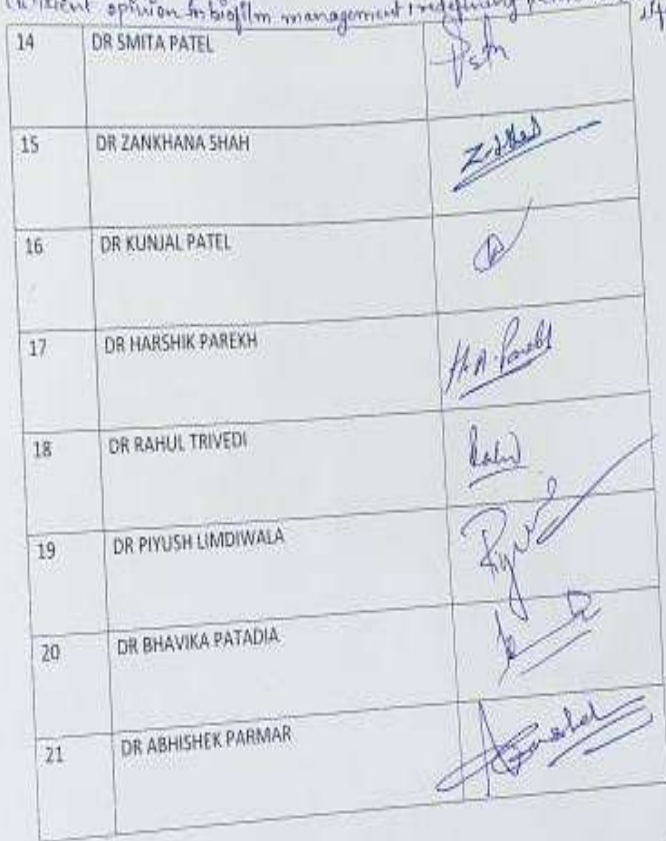 opinion for biofilm management & redefining
14 DR SMITA PATEL
15 DR ZANKHANA SHAH Z.J.Shah
16 DR KUNJAL PATEL
17 DR HARSHIK PAREKH H.A.Parekh
18 DR RAHUL TRIVEDI Rahul
19 DR PIYUSH LIMDIWALA
20 DR BHAVIKA PATADIA
21 DR ABHISHEK PARMAR